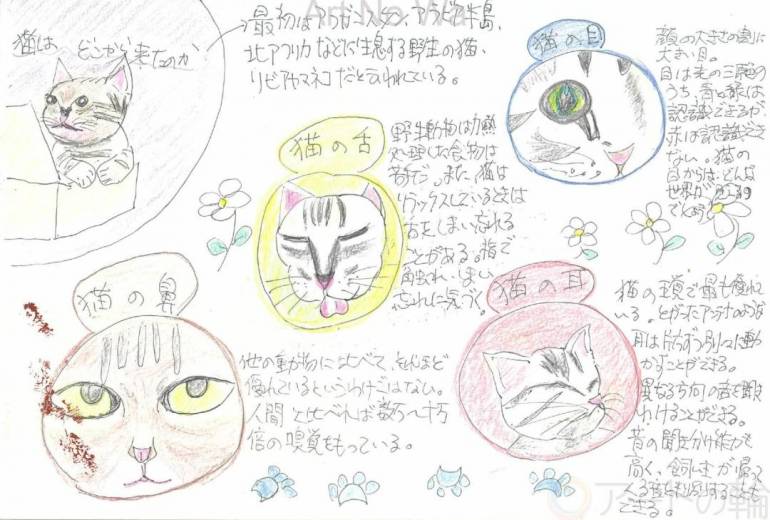 猫は どこから来たのか
最初はアフガニスタン、アラビア半島、
北アフリカなどに生息する野生の猫、
リビアヤマネコだと云われている。
猫の目
顔の大きさの割に
大きい目。
目は光の三原色の
うち、青と緑は
認識できるが、
赤は認識でき
ない。猫の
目からは、どんな
世界が
でしょう
猫の舌
野生動物は加熱
処理した食物は
苦手だ。また、猫は
リラックスしているときは
舌をしまい忘れる
ことがある。指で
触れ、しまい
忘れに気づく。
猫の鼻
他の動物に比べて、それほど
優れているというわけではない。
人間と比べれば数万〜十万
倍の嗅覚をもっている。
猫の耳
猫の五覚で最も優れて
いる。とがったアンテナのような
耳は片方ずつ別々に動
かすことができる。
異なる方向の音を聞き
わけることができる。
音の聞き分け能力が
高く、飼い主が帰って
くる音を判別することも
できる。
Art No Wa
アートの輪